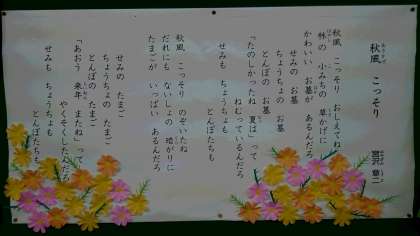 秋風 こっそり
宮沢 章二
秋風 こっそり おしえてね
林の 小みちの 草かげに
かわいい お墓が あるんだろ
せみの お墓
ちょうちょの お墓
とんぼの お墓
「たのしかったね 夏は」って
ねむっているんだろ
せみも ちょうちょも
とんぼたちも
秋風 こっそり のぞいたね
だれにも ないしょの 暗がりに
たまごが いっぱい あるんだろ
せみの たまご
ちょうちょの たまご
とんぼの たまご
「あおう 来年 またね」って
やくそくしたんだろ
せみも ちょうちょも
とんぼたちも